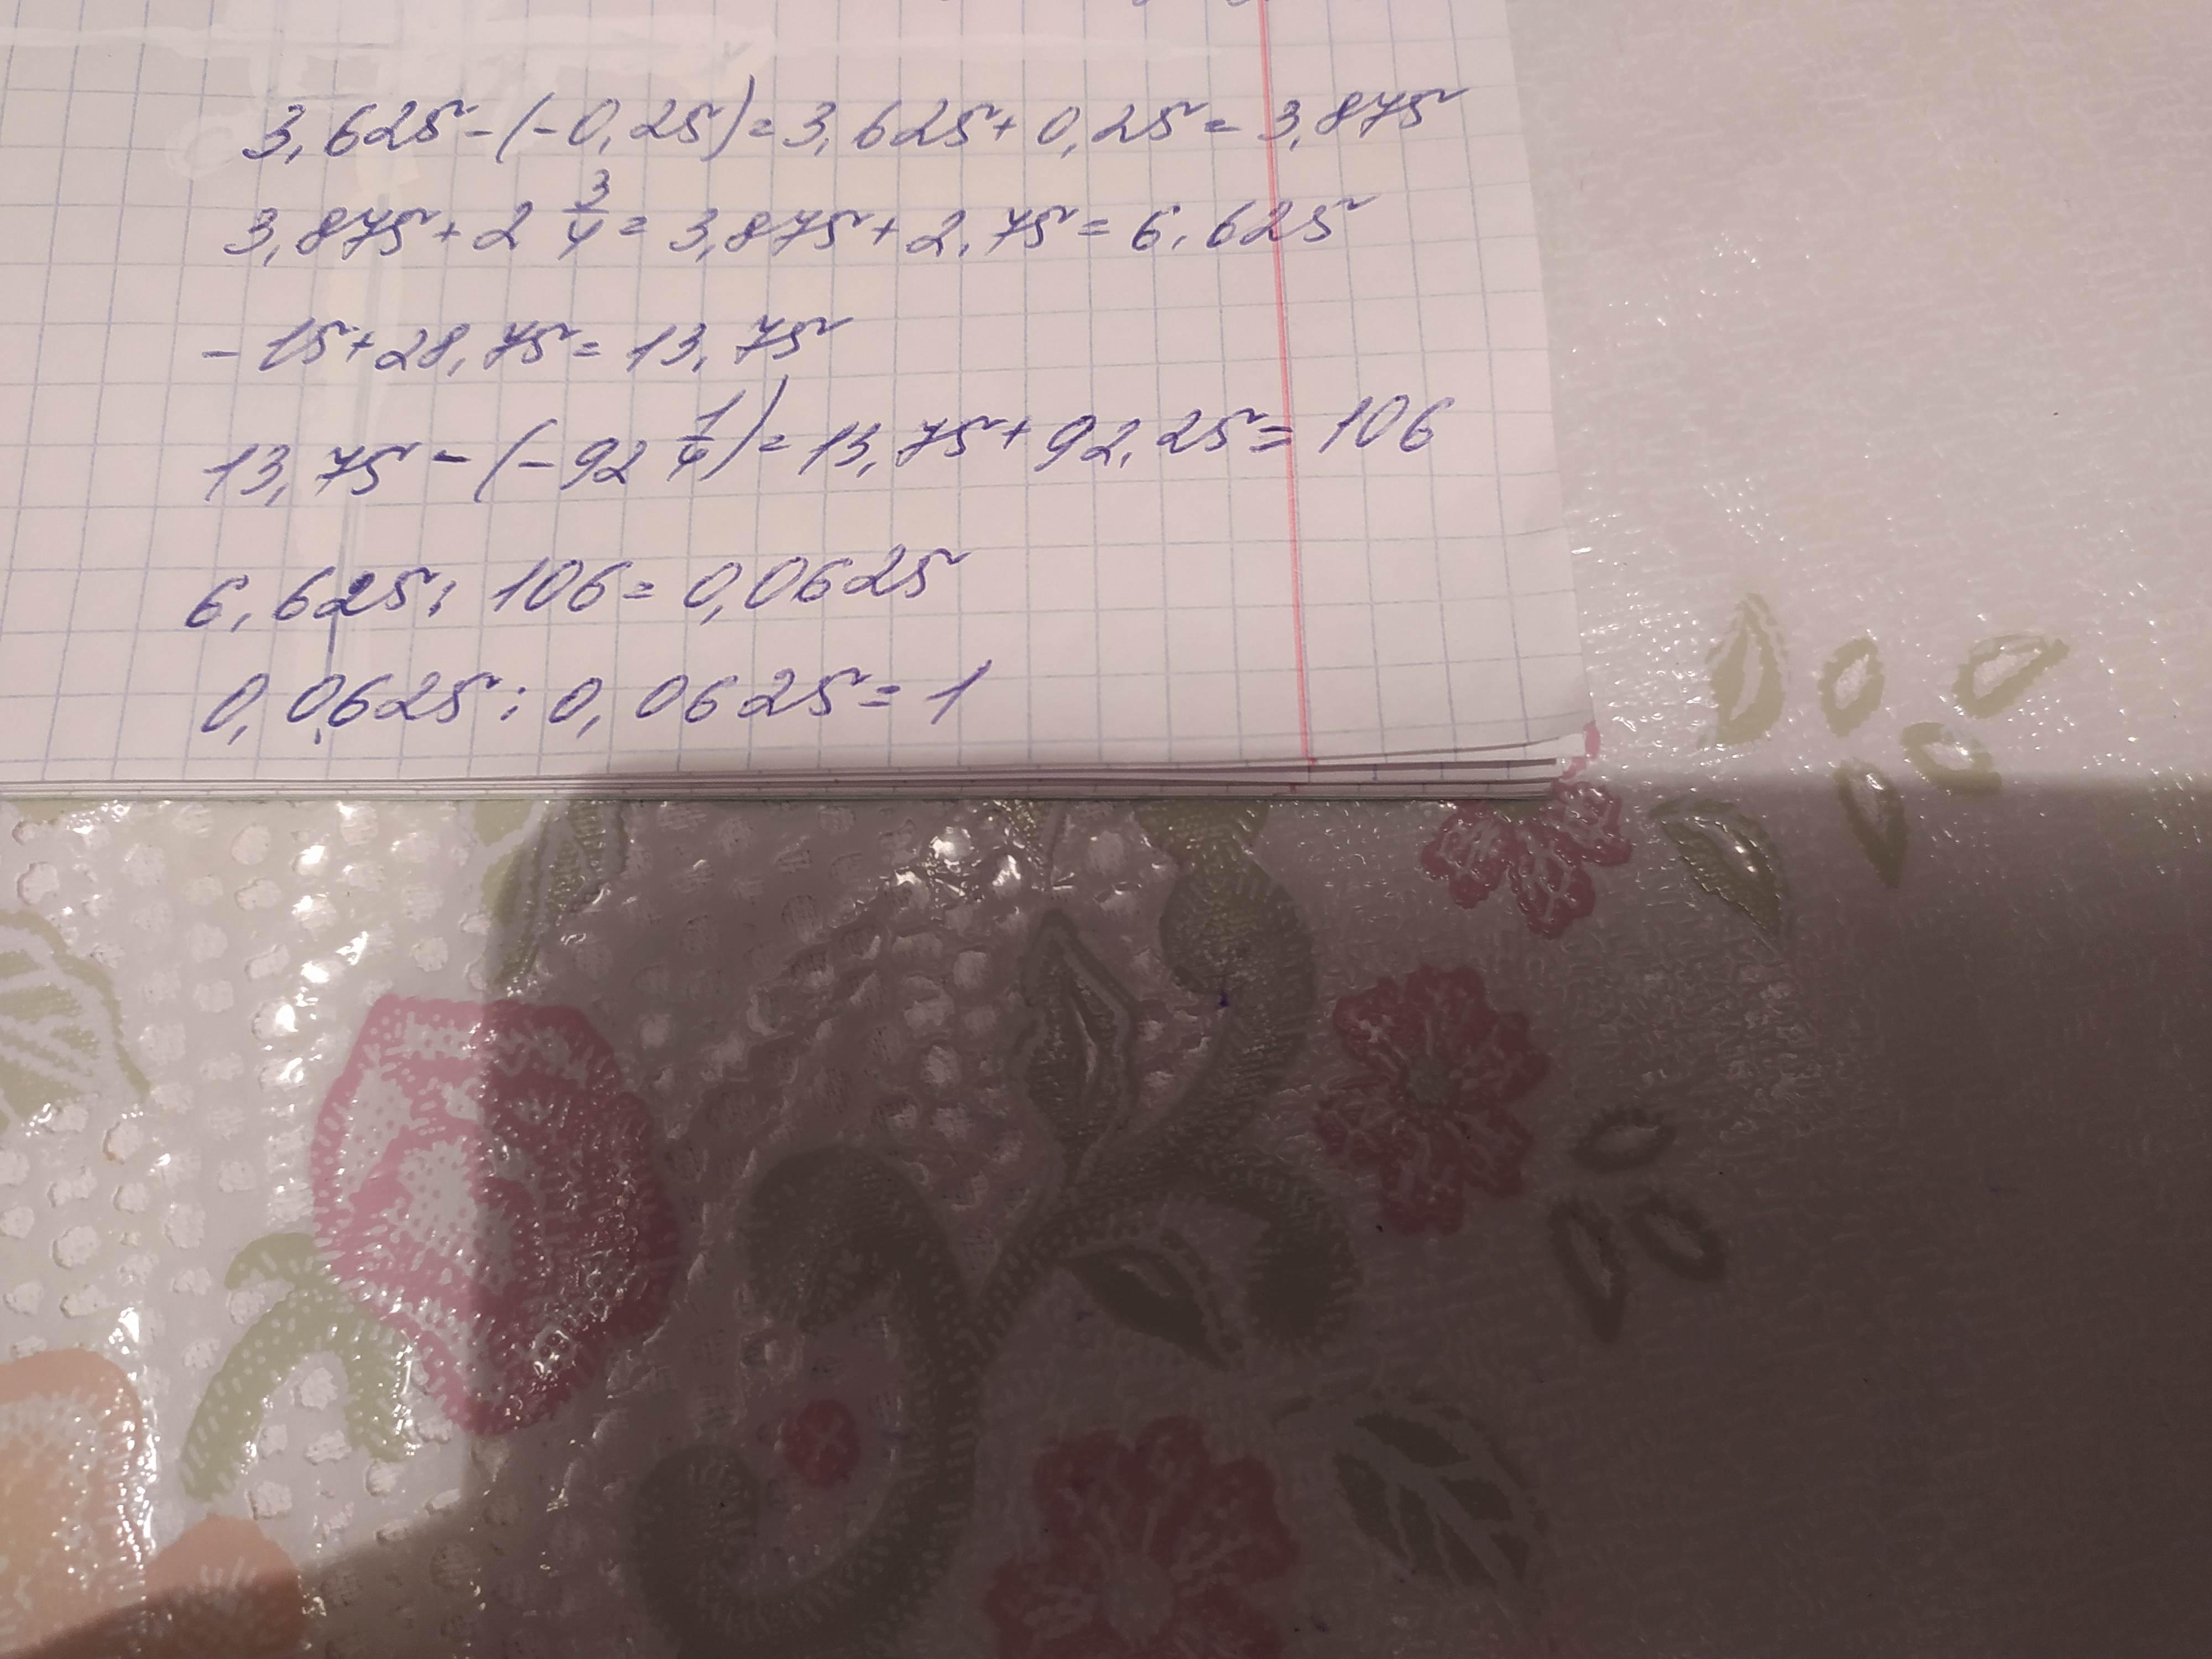 3,625-(-0,25)=3,625+0,25=3,875
3,875+2 3/4=3,875+2,75=6,625
-15+28,75=13,75
13,75-(-92 1/4)=13,75+92,25=106
6,625:106=0,0625
0,0625:0,0625=1